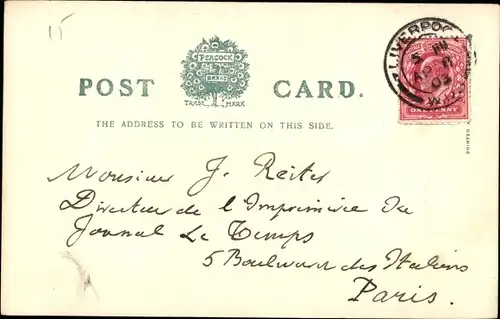 15
LIVERPOOL
5 PM
AP 8
03
PEACOCK
BRAND
POST CARD.
TRADE MARK
ONE PENNY
THE ADDRESS TO BE WRITTEN ON THIS SIDE.
PRINTED
Monsieur J. Reiter
Directeur de l'Imprimerie du
Journal Le Temps
5 Boulevard des Italiens
Paris.